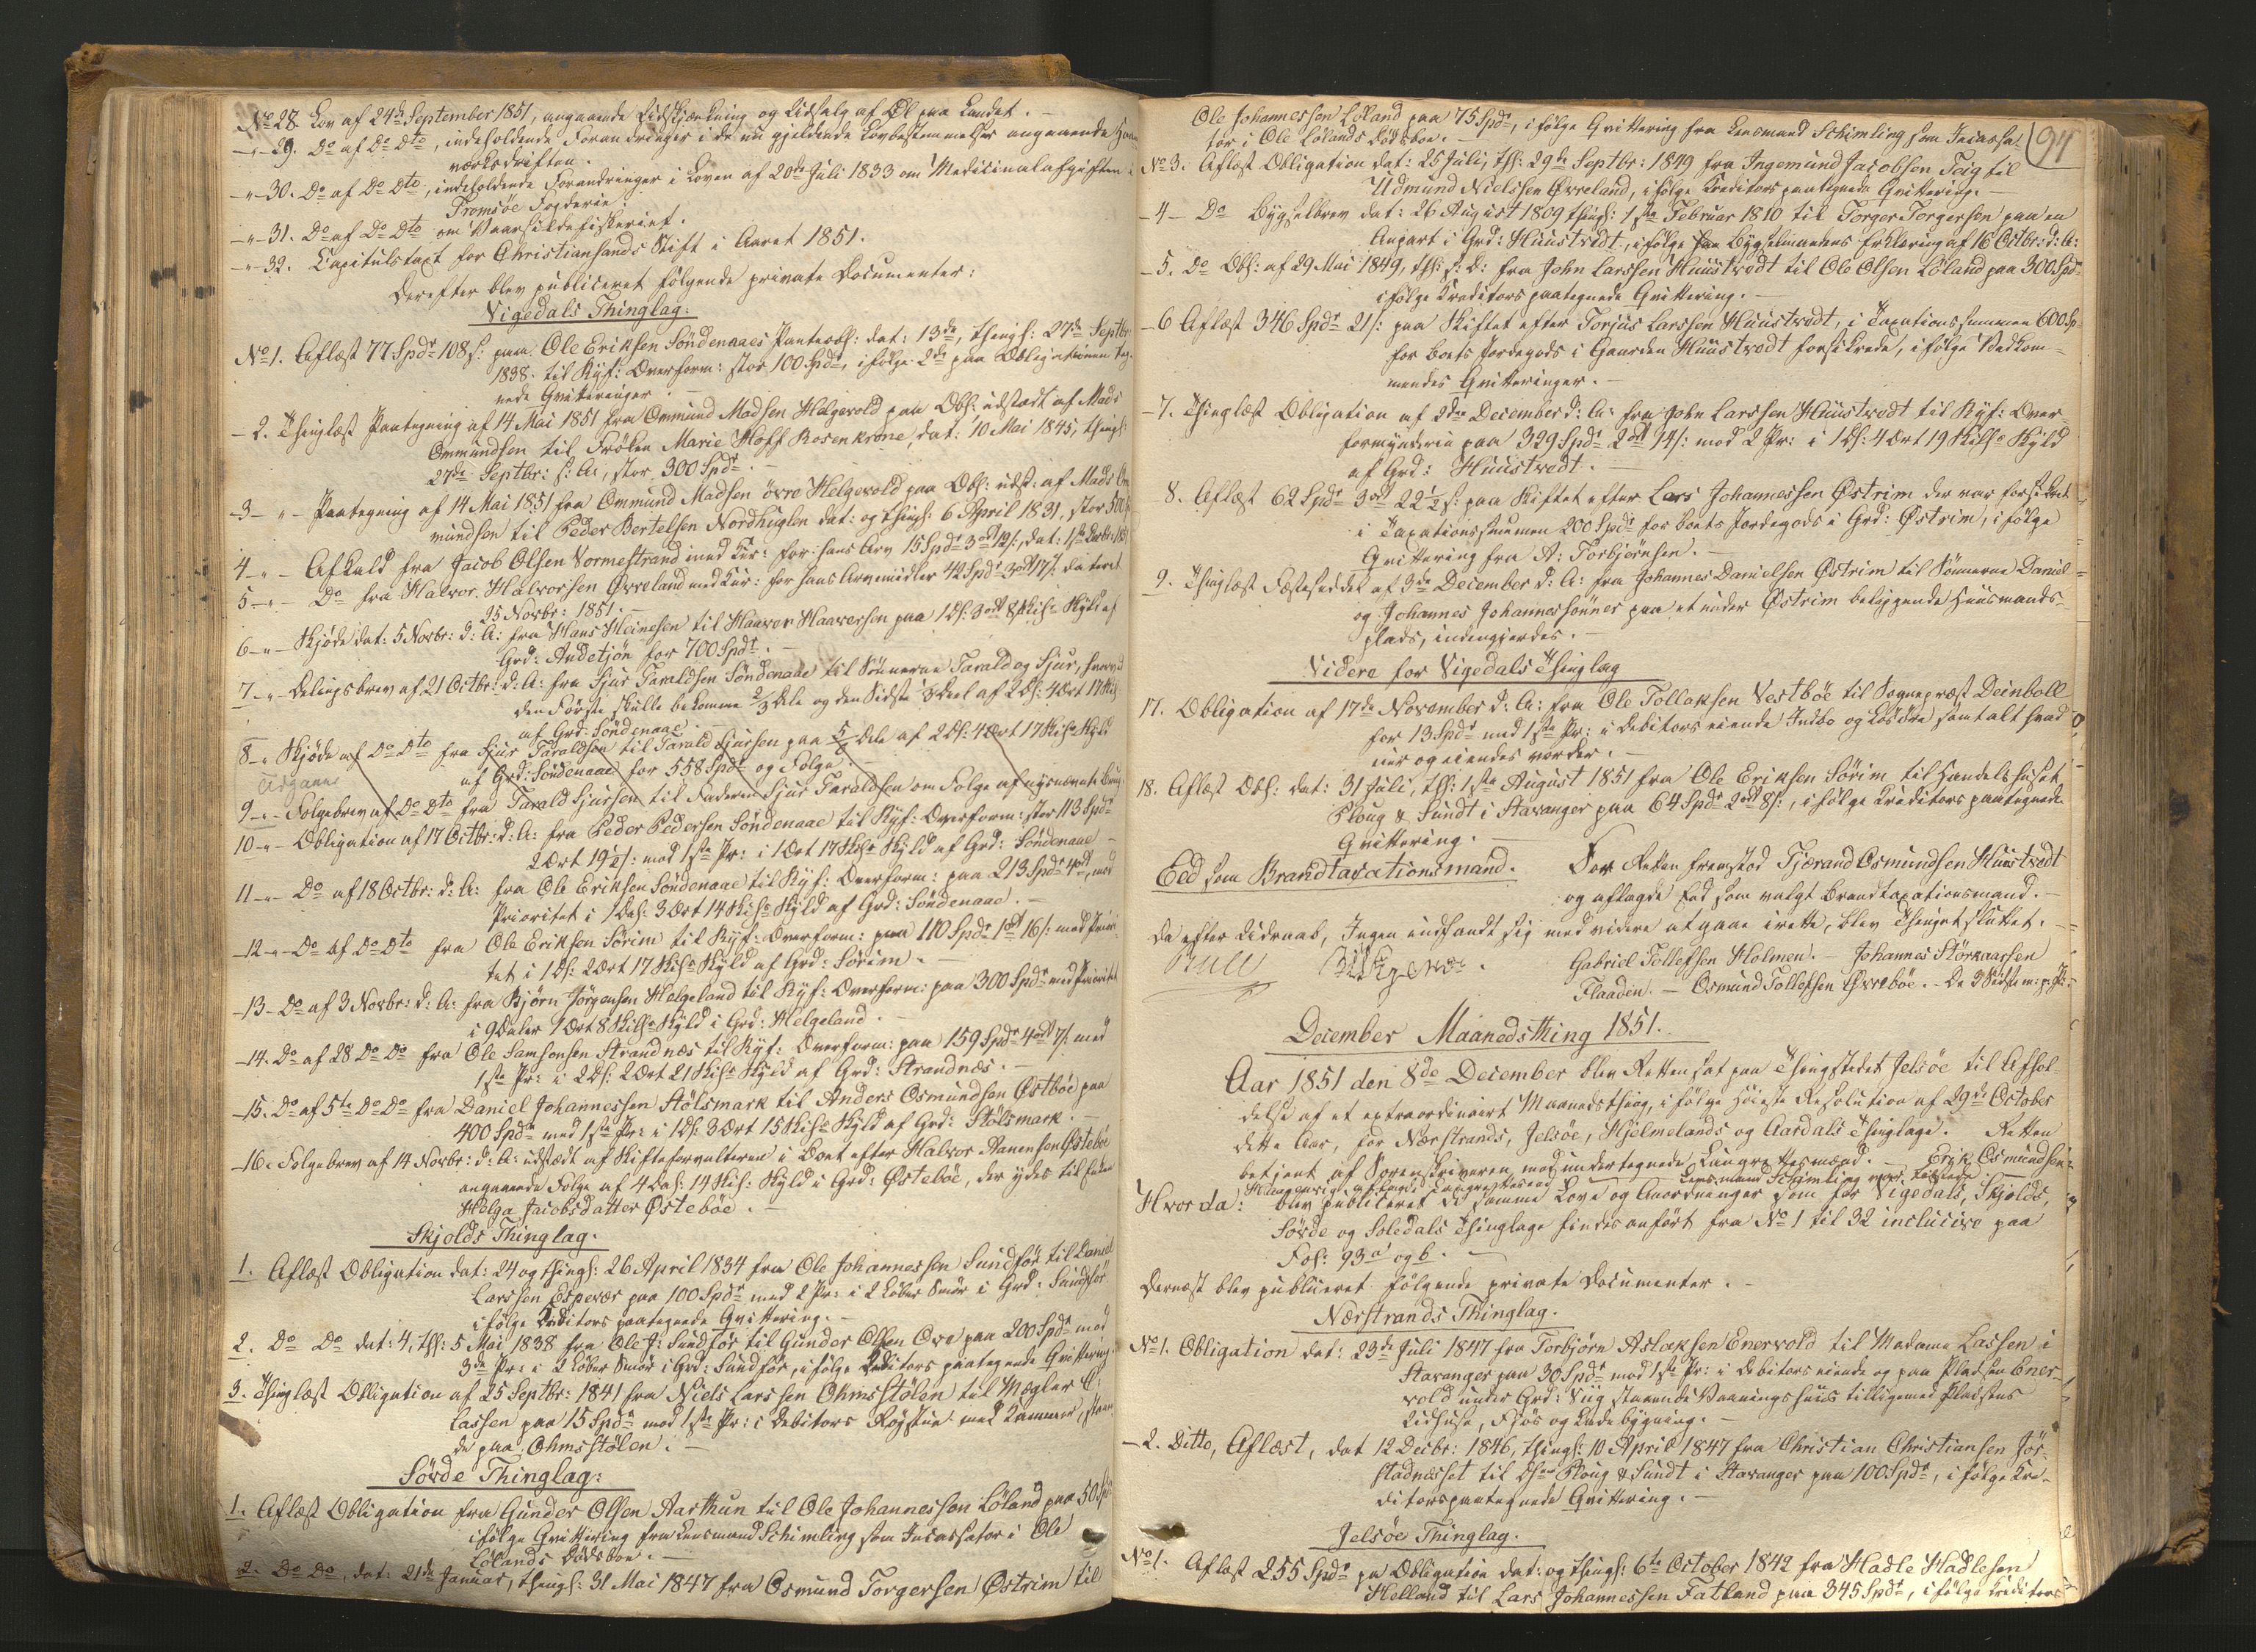 No 28 Lov af 24de September 1851, angaaende Udskjænkning og Udsalg af Øl paa Landet. -
-"-29. Do af Do Dto, indeholdende Forandringer i de nu gjeldende Lovbestemmelser angaaende
værksdriften.
-"-30. Do af Do Dto, indeholdende Forandringer i Loven af 20de Juli 1833 om Medicinalafgiften i
Tromsöe Fogderie.
-"-31. Do af Do Dto om Vaarsildefiskeriet.
-"-32. Capitulstaxt for Christiansands Stift i Aaret 1851.
Derefter blev publiceret følgende private Documenter:
Vigedals Thinglag:
No 1. Aflæst 77 Spdr 108 s: paa Ole Eriksen Söndenaaes Panteobl: dat: 13de, thingl: 27de Septbr:
1838. til Ryf: Overform: stor 100 Spdr, ifølge 2de paa Obligationen teg-
nede Qvitteringer
-2. Thinglæst Paategning af 14 Mai 1851 fra Ommund Madsen Helgevold paa Obl: udstædt af Mads
Ommundsen til Frøken Marie Hoff Rosenkrone, dat: 10 Mai 1845, thingl:
27de Septbr: s: A:, stor 300 Spdr. -
-3- " - Paategning af 14 Mai 1851 fra Ommund Madsen övre Helgevold paa Obl: udst: af Mads Om-
mundsen til Peder Bertelsen Nordhuglen dat: og thingl: 6 April 1831, stor 500
4-"- Afkald fra Jacob Olsen Vormestrand med Cur: for hans Arv 15 Spdr 3 ort 12 s:, dat:
5-"- Do fra Halvor Halvorsen Øvreland med Cur: for hans Arvemidler 42 Spdr 3 ort 17 s. dateret
25 Novbr: 1851. -
6-"- Skjøde dat: 5 Novbr: d: A: fra Hans Heinesen til Haaver Haaversen paa 1 Lp: 3 ort 8 skil: Skyld af
Grd: Andetjön for 700 Spdr. -
7-"- Delingsbrev af 21 Octbr: d: A: fra Sjur Taraldsen Söndenaae til Sönnerne Tarald og Sjur, hvorved
den Første skulle bekomme 2/3 Dele og den Sidste 1/3 Deel af 2 Lp: 4 Ort 17 skil:
af Grd: Söndenaae.
8-" Skjøde af Do Dto fra Sjur Taraldsen til Tarald Sjursen paa 5/6 Dele af 2 Lp: 4 Ort 17 skil: Skyld
Udgaaer
af Grd: Söndenaae for 558 Spdr og Folge. -
9-"- Folgebrev af Do Dto fra Tarald Sjursen til Faderen Sjur Taraldsen om Folge af nysnævnte Brug.
10-"- Obligation af 17 Octbr: d: A: fra Peder Pedersen Söndenaae til Ryf: Overform: stor 113 Spdr
2 Ort 19 1/2 s: mod 1ste Pr: i 1 Ort 17 skil: Skyld af Grd: Söndenaae -
11-"- Do af 18 Octbr: d: A: fra Ole Eriksen Söndenaae til Ryf: Overform: paa 213 Spdr 4 ort, mod
Prioritet i 1 Lp: 3 Ort 14 skil: Skyld af Grd: Söndenaae. -
-12-"- Do af Do Dto fra Ole Eriksen Sörim til Ryf: Overform: paa 110 Spdr 1 ort 16 s: mod Priori-
tet i 1 Lp: 2 Ort 17 skil: Skyld af Grd: Sörim. -
-13- Do af 3 Novbr: d: A: fra Bjørn Jörgensen Helgeland til Ryf: Overform: paa 300 Spdr med Prioritet
i 9 Daler 1 Ort 8 skill: Skyld i Grd: Helgeland. -
-14. Do af 28 Do Do fra Ole Samsonsen Strandnæs til Ryf: Overform: paa 159 Spdr 4 ort 7 s. med
1ste Pr: i 2 Lp: 2 Ort 21 skil: Skyld af Grd: Strandnæs. -
-15. Do af 5te Do Do fra Daniel Johannessen Stölsmark til Anders Osmundsen Østbøe paa
400 Spdr mod 1ste Pr: i 1 Lp: 3 Ort 15 skil: Skyld af Grd: Stölsmark. -
-16. Folgebrev af 14 Novbr: d: A: udstædt af Skifteforvalteren i Boet efter Halvor Aanensen Østebøe
angaaende Folge af 4 Lp: 14 skil: Skyld i Grd: Østebøe, der ydes til Enken
Helga Jacobsdatter Østebøe. -
Skjolds Thinglag.
1. Aflæst Obligation dat: 24 og thingl: 26 April 1834 fra Ole Johannessen Sundför til Daniel
Larssen Espevær paa 100 Spdr mod 2 Pr: i 2 Løber Smør i Grd: Sundför
ifølge Creditors paategnede Qvittering. -
2. Do Do dat: 4, thl: 5 Mai 1838 fra Ole J: Sundför til Gunder Olsen Ove paa 200 Spdr mod
3de Pr: i 2 Løber Smør i Grd: Sundför, ifølge Creditors paategnede Qvittering
3. Thinglæst Obligation af 25 Septbr: 1841 fra Niels Larssen Ohmsstölen til Mægler C:
Lassen paa 15 Spdr mod 1ste Pr: i Debitors Røgstue med Kammer, staaen-
de paa Ohmsstölen. -
Sövde Thinglag:
1. Aflæst Obligation fra Gunder Olsen Aarthun til Ole Johannessen Löland paa 50 Spdr
ifølge Qvittering fra Lensmand Schimling som Incassator i Ole
Lölands Dödsboe. -
2. Do Do, dat: 21de Januar, thingl: 31 Mai 1847 fra Osmund Torgersen Østrim til
94
Ole Johannessen Löland paa 75 Spdr, ifølge Qvittering fra Lensmand Schimling som Incassa-
tor i Ole Lölands Dödsboe. -
No 3. Aflæst Obligation dat: 25 Juli, thl: 29de Septbr: 1849 fra Ingemund Jacobsen Teig til
Udmund Nielssen Øvreland, ifølge Creditors paategnede Qvittering. -
-4- Do Bygselbrev dat: 26 August 1809 thingl: 1ste Februar 1810 til Torger Torgersen paa en
Anpart i Grd: Huustvedt, ifølge Bygselmandens Erklæring af 16 Octbr: d: A:
-5. Do Obl: af 29 Mai 1849, thl: s: D: fra John Larssen Huustvedt til Ole Olsen Löland paa 300 Spdr
ifølge Creditors paategnede Qvittering. -
-6 Aflæst 346 Spdr 21 s: paa Skiftet efter Torjus Larssen Huustvedt, i Taxationssummen 600 Sp.
for Boets Jordegods i Gaarden Huustvedt forsikrede, ifølge Vedkom-
mendes Qvitteringer. -
-7. Thinglæst Obligation af 2den December d: A: fra John Larssen Huustvedt til Ryf: Over-
formynderie paa 329 Spdr 2 ort 14 s: mod 2 Pr: i 1 Lp: 4 Ort 19 skill: Skyld
af Grd: Huustvedt. -
8. Aflæst 62 Spdr 3 ort 22 1/2 s: paa Skiftet efter Lars Johannessen Østrim der var forsikret
i Taxationssummen 200 Spdr for Boets Jordegods i Grd: Østrim, ifølge
Qvittering fra A: Torbjørnsen. -
9. Thinglæst Fæsteseddel af 3de December d: A: fra Johannes Danielsen Østrim til Sönnerne Daniel
og Johannes Johannessönner paa et under Østrim beliggende Huusmands-
plads, indengjerdes. -
Videre for Vigedals Thinglag
17. Obligation af 17de November d: A: fra Ole Tollaksen Vestböe til Sognepræst Deinboll
for 13 Spdr mod 1ste Pr: i Debitors eiende Indbo og Løsøre samt alt hvad
eier og eiendes vorder. -
18. Aflæst Obl: dat: 31 Juli, thl: 1ste August 1851 fra Ole Eriksen Sörim til Handelshuset
Ploug & Sundt i Stavanger paa 64 Spdr 2 ort 8 s:, ifølge Creditors paategnede
Qvittering. -
Eed som Brandtaxationsmand. For Retten fremstod Tjærand Osmundsen Huustvedt
og aflagde Eed som valgt Brandtaxationsmand. -
Da efter Udraab, Ingen indfandt sig med videre at gaae irette, blev Thinget sluttet. -
Gabriel Tollefsen Holmen. - Johannes Störkaarsen
Flaaden. - Osmund Tollefsen Øvrebøe. - De 3 Sidste m: p: P:
December Maanedsthing 1851.
Aar 1851 den 8de December blev Retten sat paa Thingstedet Jelsöe til Afhol-
delse af et extraordinairt Maanedsthing, ifølge høieste Resolution af 29de October
dette Aar, for Nærstrands, Jelsöe, Hjelmelands og Aardals Thinglage. Retten
betjent af Sorenskriveren med undertegnede Laugrettesmænd. - Erik Osmundsen
aflagde Laugrettes Eed Lensmand Schimling var tilstede
Hvorda: blev publiceret de samme Love og Anordninger som for Vigedals, Skjolds,
Sövde og Soledals Thinglage findes anført fra No 1 til 32 inclusive paa
Fol: 93 a og b. -
Dernæst blev publiceret følgende private Documenter. -
Nærstrands Thinglag.
No 1. Obligation dat: 23de Juli 1847 fra Torbjörn Aslaksen Enervold til Madame Lassen i
Stavanger paa 30 Spdr mod 1ste Pr: i Debitors eiende og paa Pladsen Ener-
vold under Grd: Viig staaende Vaaningshuus tilligemed Pladsens
Udhuse, Fjøs og Ladebygning. -
-2. Ditto, Aflæst, dat 12 Decbr: 1846, thingl: 10 April 1847 fra Christian Christiansen Jör-
stadnæsset til DHrr Ploug & Sundt i Stavanger paa 100 Spdr, ifølge Cre-
ditors paategnede Qvittering. -
Jelsöe Thinglag.
No 1. Aflæst 255 Spdr paa Obligation dat: og thingl: 6te October 1842 fra Hadle Hadlesen
Helland til Lars Johannessen Fatland paa 345 Spdr, ifølge Creditors